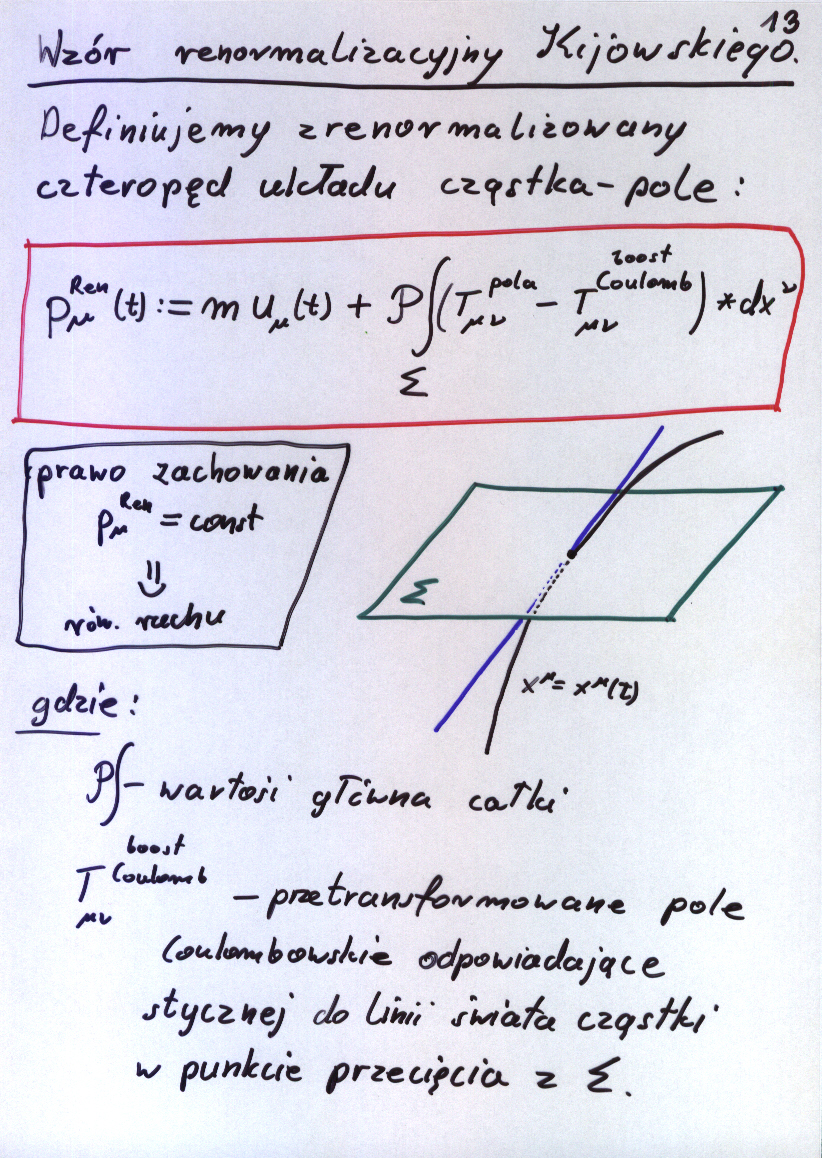 13
Wzór renormalizacyjny Kijowskiego.
Definiujemy zrenormalizowany
czteropęd układu cząstka-pole:
p_μ^Ren (t) := m u_μ(t) + P∫_Σ (T_μν^pola − T_μν^boost Coulomb) *dx^ν
prawo zachowania
p_μ^Ren = const
⇓
rów. ruchu
Σ
x^μ = x^μ(t)
gdzie:
P∫ – wartość główna całki
T_μν^boost Coulomb – przetransformowane pole
Coulombowskie odpowiadające
stycznej do linii świata cząstki
w punkcie przecięcia z Σ.